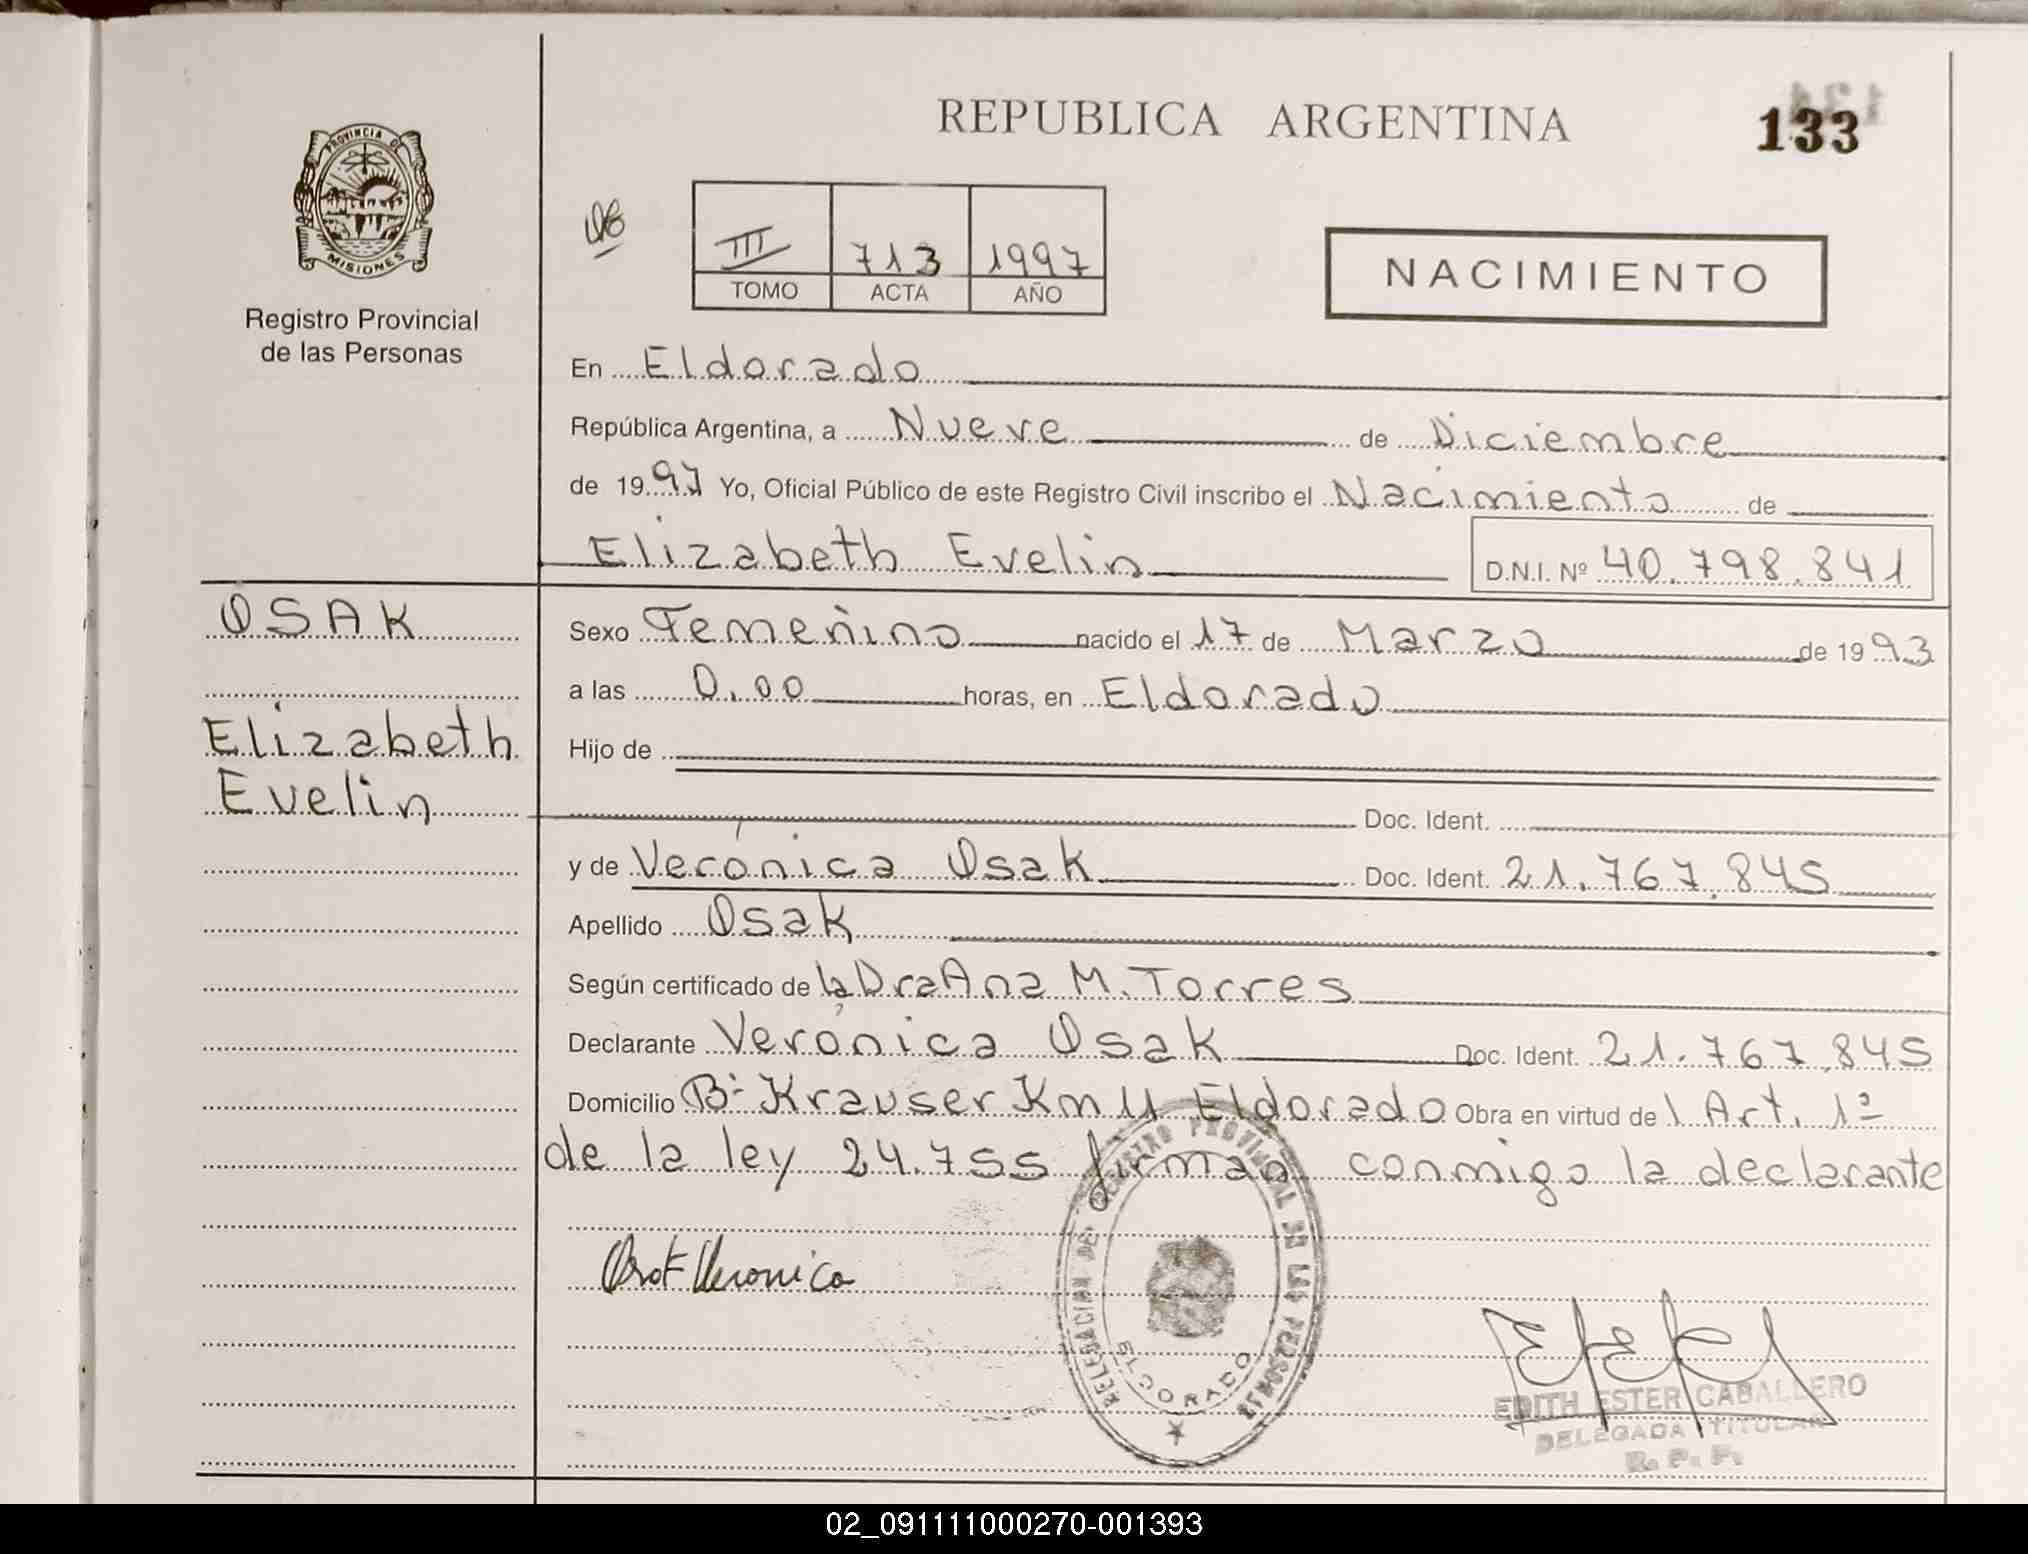 REPUBLICA ARGENTINA
133
PROVINCIA DE
MISIONES
Registro Provincial
de las Personas
III 713 1997
TOMO ACTA AÑO
NACIMIENTO
En Eldorado
República Argentina, a Nueve de Diciembre
de 1997 Yo, Oficial Público de este Registro Civil inscribo el Nacimiento de
Elizabeth Evelin D.N.I. Nº 40.798.841
OSAK
Elizabeth
Evelin
Sexo Femeñino nacido el 17 de Marzo de 1993
a las 0.00 horas, en Eldorado
Hijo de
Doc. Ident.
y de Verónica Osak Doc. Ident. 21.767.845
Apellido Osak
Según certificado de la Dra Ana M. Torres
Declarante Verónica Osak Doc. Ident. 21.767.845
Domicilio Bº Krauser Km 11 Eldorado Obra en virtud de l Art. 1º
de la ley 24.755 firmao conmigo la declarante
Veronica
DELEGACION DEL REGISTRO PROVINCIAL DE LAS PERSONAS
ELDORADO
EDITH ESTER CABALLERO
DELEGADA TITULAR
R. P. P.
02_091111000270-001393